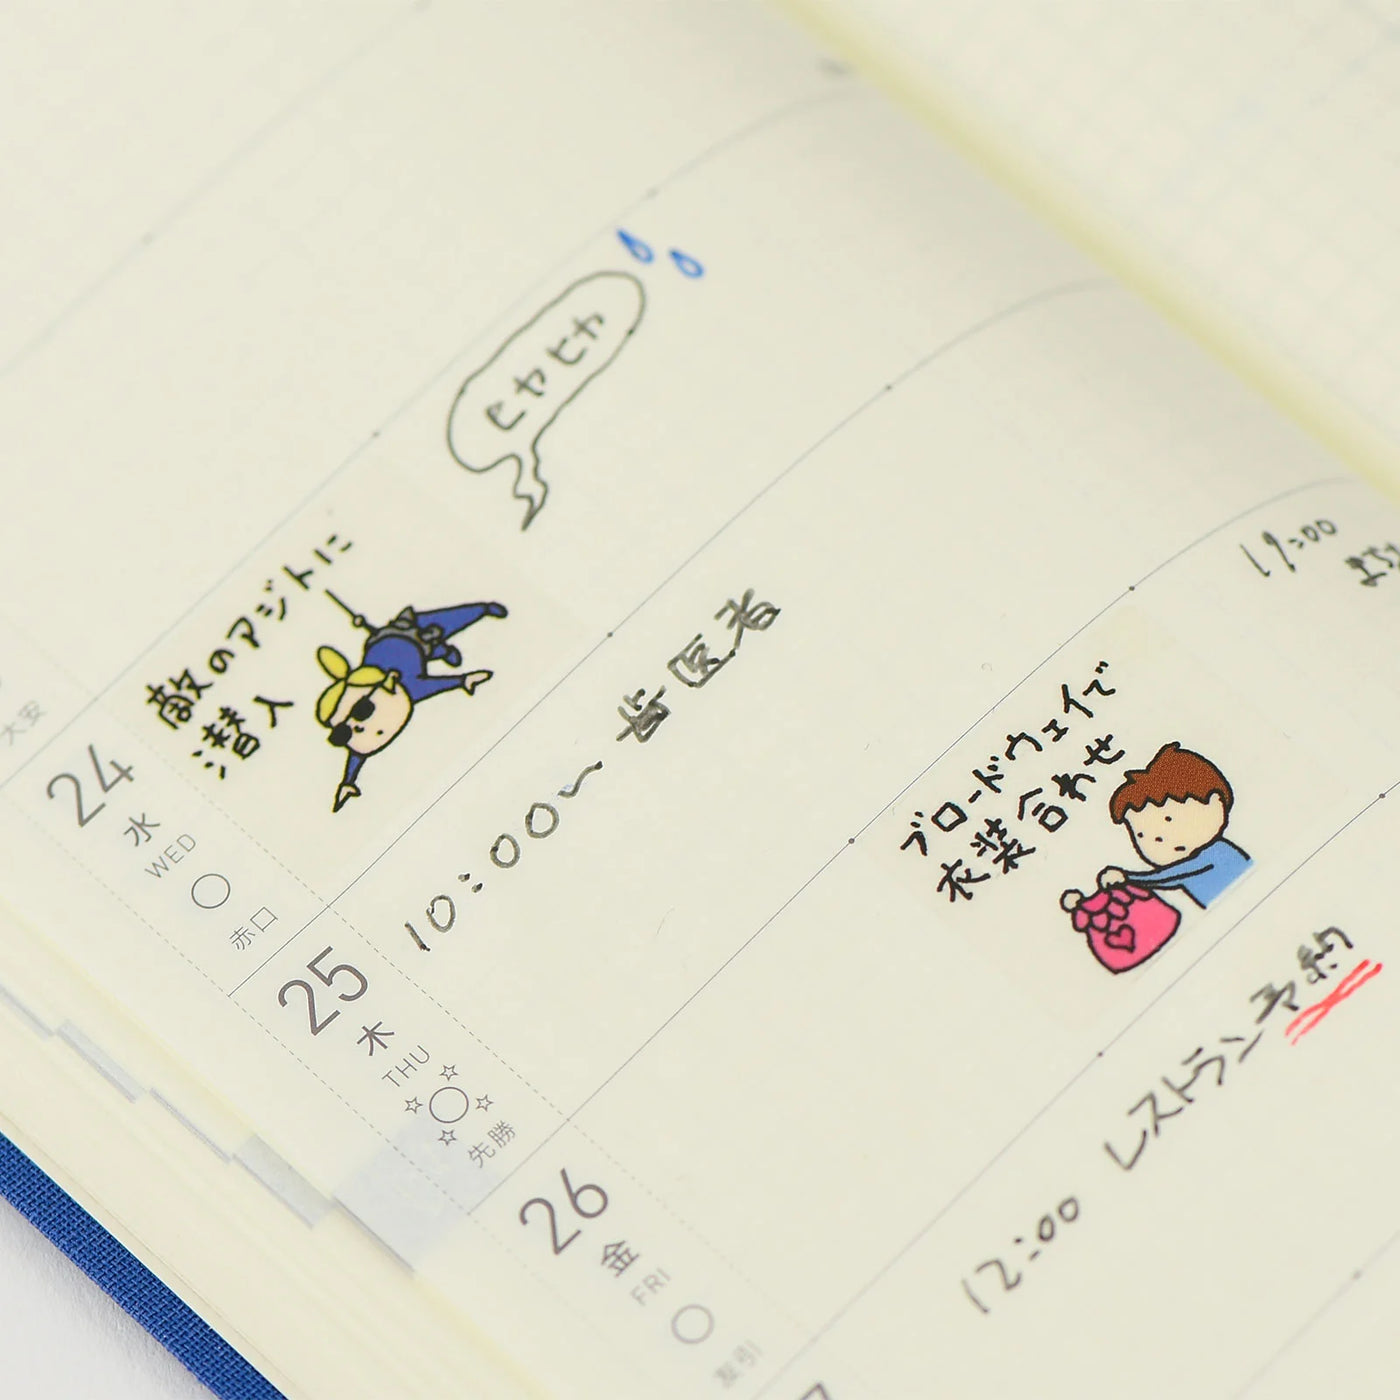 大安
24
水
WED
赤口
敵のアジトに
潜入
ヒヤヒヤ
25
木
THU
先勝
10:00〜 歯医者
26
金
FRI
友引
ブロードウェイで
衣装合わせ
19:00
12:00 レストラン予約